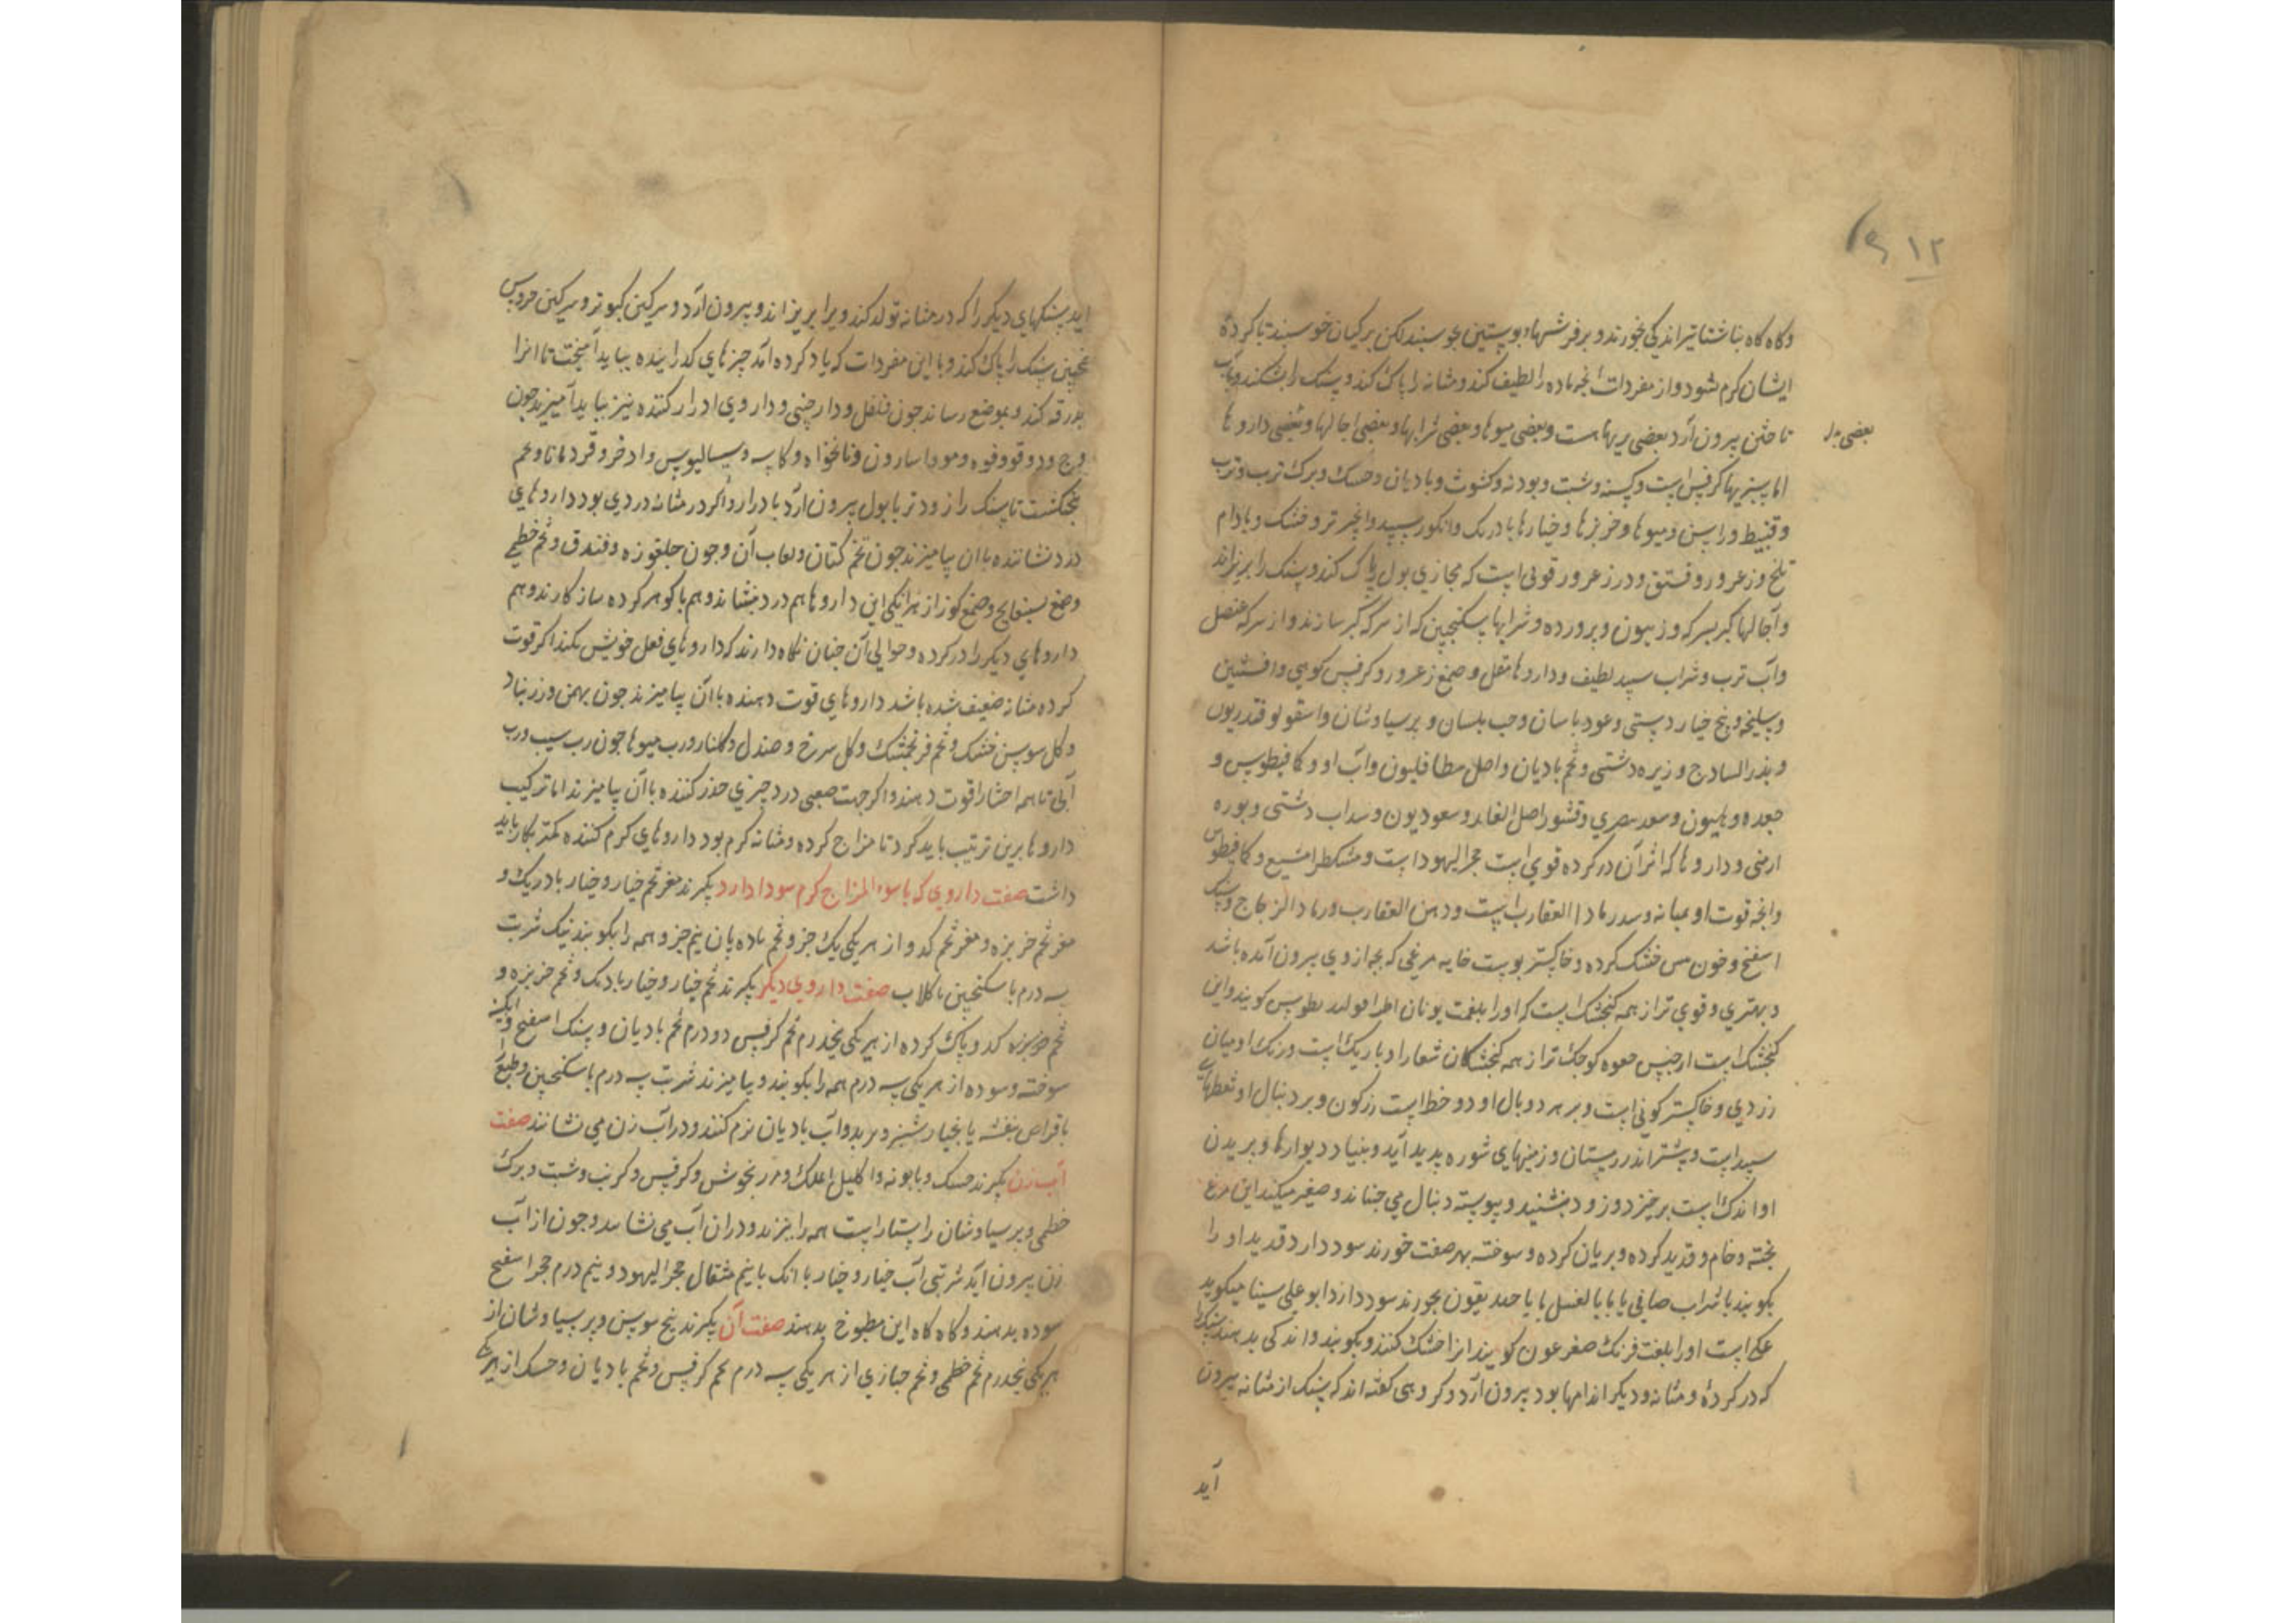 ۱۲
وکاه کاه بناشتا تیز اندکی بخورند و بر فرشها و بوستین بخوسبند لکن بر کیان خوسبند تا کرده
ایشان کرم شود و از مفردات انجه ماده را لطیف کند و مثانه را باک کند و سنک را بشکند و باب
تاختن بیرون آرد بعضی تریهاست و بعضی میوها و بعضی شرابها و بعضی اجالها و بعضی داروها
بعضی
اما سبزیها کرفس است و کسنه و شبت و بودنه و کشوث و بادیان و حسک و برک ترب و ترب
و قنبیط و راسن و میوها و خربزها و خیارها بادرنک و انکور سبید و انجیر تر و خشک و بادام
تلخ و زعرور و فستق و در زعرور قوتی است که مجازی بول باک کند و سنک را بریزاند
و آجالها کبر بسرکه و زیتون و برورده و شرابها سکنجبین که از سرکه کبر سازند و از سرکه عنصل
و آب ترب و شراب سبید لطیف و داروها مقل و صمغ زعرور و کرفس کوهی و افسنتین
و سلیخه و بیخ خیار دستی و عود باسان و حب بلسان و برسیاوشان و اسقولوقندریون
و بذر السادج و زیره دشتی و تخم بادیان و اصل مطافلیون و آب او و کمافیطوس و
جعده و هلیون و سعد مصری و قشور اصل الغار و سعود یون و سداب دشتی و بوره
ارمنی و داروها که اثر آن در کرده قوی است حجر الیهود است و مشکطرامشیع و کمافیطوس
وانجه قوت او بمثانه رسد رماد العقارب است و دهن العقارب و رماد الزجاج و سنک
اسفنج و خون مس خشک کرده و خاکستر بوست خایه مرغی که بجه از وی بیرون آمده باشد
و بهتری و قوی تر از همه کنجشک است که او را بلغت یونان اطراغولیدیطوس کویند و این
کنجشک است از جنس صعوه کوجک تر از همه کنجشکان شعار او باریک است و رنک او میان
زردی و خاکستر کونی است و بر هر دو بال او دو خط است زرکون و بر دنبال او نقطهای
سبید است و بیشتر اندر زمستان و زمینهای شوره بدید آید و بنیاد دیوارها و بریدن
او اندک است برخیزد و زود بنشیند و بیوسته دنبال می جنباند و صفیر میکند این مرغ
بخته و خام و قدید کرده و بریان کرده و سوخته بهر صفت خورند سود دارد قدید او را
بکوبند با شراب صافی یا با با العسل یا با حندیقون بخورند سود دارد ابو علی سینا میکوید
عکی است او را بلغت فرنک صفرعون کویند انرا خشک کنند و بکوبند و اندکی بدهند سنک را
که در کردهٔ و مثانه و دیکر اندامها بود بیرون آرد و کروهی کفته اند که سنک از مثانه بیرون
آید
اید سنکهای دیکر را که در مثانه تولد کند ویرا بریزاند و بیرون آرد و سرکین کبوتر و سرکین خروس
همجنین سنک را باک کند و با این مفردات که یاد کرده آمد چیزهای کدازینده بباید آمیخت تا انرا
بدرقه کند و بموضع رساند جون فلفل و دارجنی و داروی ادرار کننده نیز بباید آمیزید جون
وج و دوقو و فوه و مو و اسارون و نانخواه و کاسه و سیسالیوس و اذخر و قردمانا و تخم
بنجنکشت تا سنک را زودتر با بول بیرون آرد بادرار و اکر در مثانه دردی بود داروهای
درد نشاننده با ان بیامیزند جون تخم کتان و لعاب آن و جون جلغوزه و فندق و تخم خطمی
و صمغ بسفایج و صمغ کوز از بهرانکی این داروها هم درد بنشاند و هم با کوهر کرده ساز کارند و هم
داروهای دیکر را در کرده و حوالی آن جنان نکاه دارند که داروهای فعل خویش بکند اکر قوت
کرده مثانه ضعیف شده باشد داروهای قوت دهنده با آن بیامیزند جون بهمن و زرنباد
و کل سوسن خشک و تخم فرنجمشک و کل سرخ و صندل و کلنار و رب میوها جون رب سیب و رب
آبی تا همه احشا را قوت دهند و اکر جهت صعبی درد چیزی خدر کننده با آن بیامیزند اما ترکیب
داروها برین ترتیب باید کرد تا مزاج کرده و مثانه کرم بود داروهای کرم کننده کمتر بکار باید
داشت صفت داروی که با سوء المزاج کرم سودا دارد بکیرند مغز تخم خیار و خیار بادرنک و
مغز تخم خربزه و مغز تخم کدو از هر یکی یک جزو تخم بادیان نیم جزو همه را بکوبند نیک شربت
سه درم با سکنجبین با کلاب صفت داروی دیکر بکیرند تخم خیار و خیار بادرنک و تخم خربزه و
تخم کدو باک کرده از هر یکی بنجدرم تخم کرفس دو درم تخم بادیان و سنک اسفنج و آبکینه
سوخته و سوده از هر یکی سه درم همه را بکوبند و بیامیزند شربت سه درم با سکنجبین و طبع را
با قراص بنفشه یا بخیار شنبر و تربد و آب بادیان نرم کنند و در آب زن می نشانند صفت
آب زن بکیرند حسک و بابونه و اکلیل الملک و مرزنجوش و کرفس و کرنب و شبت و برک
خطمی و برسیاوشان راستا راست همه را ببزند و در ان آب می نشانند و جون از آب
زن بیرون آید شربتی آب خیار و خیار بادرنک با نیم مثقال حجر الیهود و نیم درم حجر اسفنج
سوده بدهند و کاه کاه این مطبوخ بدهند صفت آن بکیرند بیخ سوسن و برسیاوشان از
هر یکی بنجدرم تخم خطمی و تخم خبازی از هر یکی سه درم تخم کرفس و تخم بادیان و حسک از هر یکی